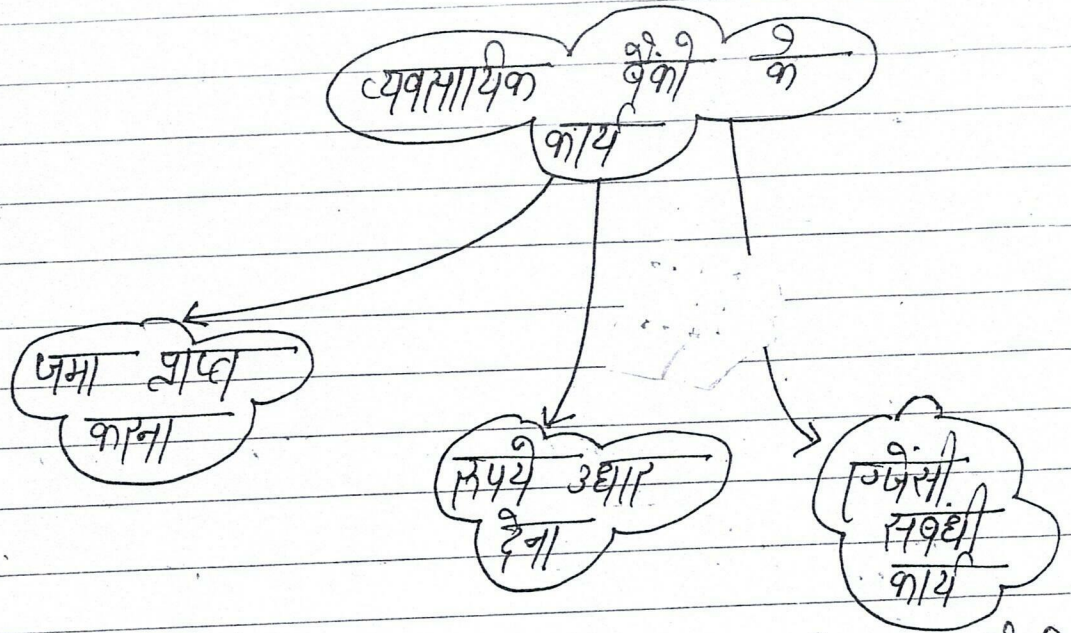 व्यवसायिक बैंको के
कार्य
जमा प्राप्त
करना
रूपये उधार
देना
एजेंसी
संबंधी
कार्य